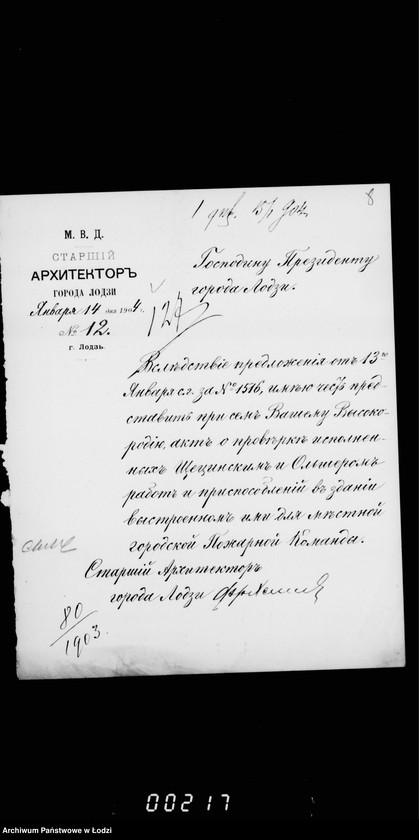 8
1 янв. 15/I 904
М. В. Д.
СТАРШІЙ
АРХИТЕКТОРЪ
ГОРОДА ЛОДЗИ
Января 14 дня 1904 г.
№ 12.
г. Лодзь.
Господину Президенту
города Лодзи.
127
Вслѣдствіе предложенія отъ 13го
Января с.г. за № 1516, имѣю честь пред-
ставить при семъ Вашему Высоко-
родію, актъ о провѣркѣ исполнен-
ныхъ Щецинскимъ и Ольшеромъ
работъ и приспособленій въ зданіи
выстроенномъ ими для мѣстной
городской Пожарной Команды.
Старшій Архитекторъ
города Лодзи
80/1903
00217
Archiwum Państwowe w Łodzi